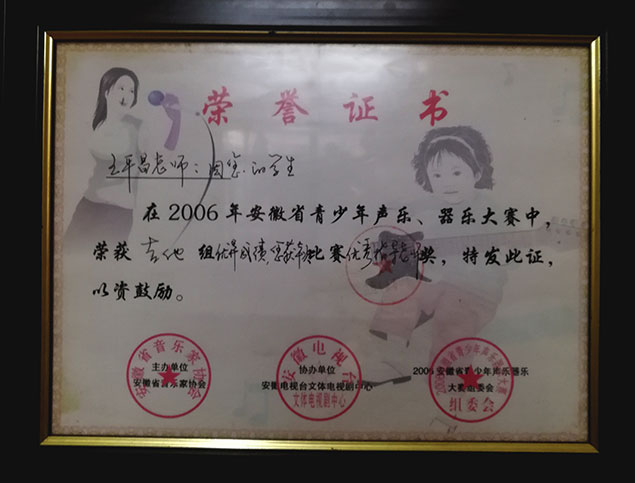 荣誉证书
王平昌老师：因您的学生
在2006年安徽省青少年声乐、器乐大赛中，
荣获 吉他 组优异成绩，您获本比赛优秀指导老师奖，特发此证，
以资鼓励。
主办单位
安徽省音乐家协会
安徽省音乐家协会
协办单位
安徽电视台文体电视剧中心
安徽电视台
文体电视剧中心
2006安徽省青少年声乐器乐
大赛组委会
2006安徽省青少年声乐器乐大赛
组委会